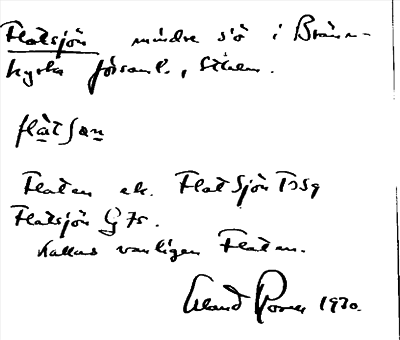 Flatsjön mindre sjö i Bränn-
kyrka församl., Sthlm.
flatſan
Flaten ek. Flat Sjön T
Flatsjön G 75.
Kallas vanligen Flaten.
Erland Rosell 1930.